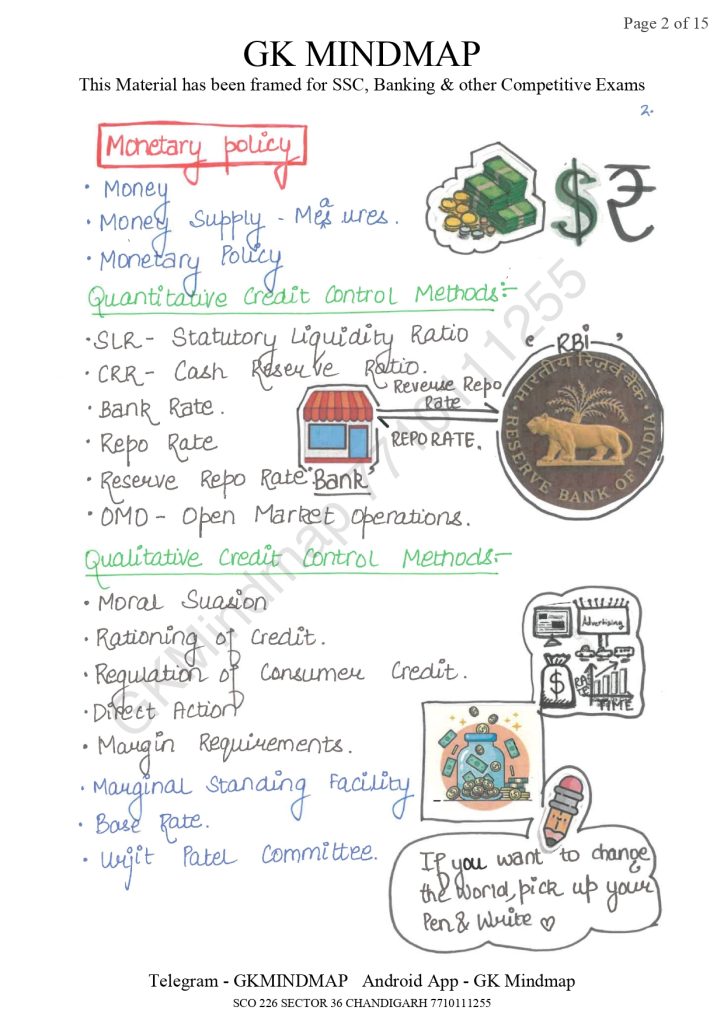 Page 2 of 15
GK MINDMAP
This Material has been framed for SSC, Banking & other Competitive Exams
2.
Monetary policy
• Money
• Money Supply - Measures.
• Monetary Policy
Quantitative Credit Control Methods:-
• SLR - Statutory Liquidity Ratio
• CRR - Cash Reserve Ratio.
• Bank Rate.
• Repo Rate
• Reserve Repo Rate
• OMO - Open Market Operations.
Reverse Repo
Rate
REPO RATE.
'Bank'
' RBI '
भारतीय रिज़र्व बैंक
RESERVE BANK OF INDIA
Qualitative Credit Control Methods:-
• Moral Suasion
• Rationing of Credit.
• Regulation of Consumer Credit.
• Direct Action
• Margin Requirements.
• Marginal Standing Facility
• Base Rate.
• Urjit Patel Committee.
Advertising
TIME
If you want to change
the world, pick up your
Pen & Write ♡
GKMindmap 7710111255
Telegram - GKMINDMAP Android App - GK Mindmap
SCO 226 SECTOR 36 CHANDIGARH 7710111255